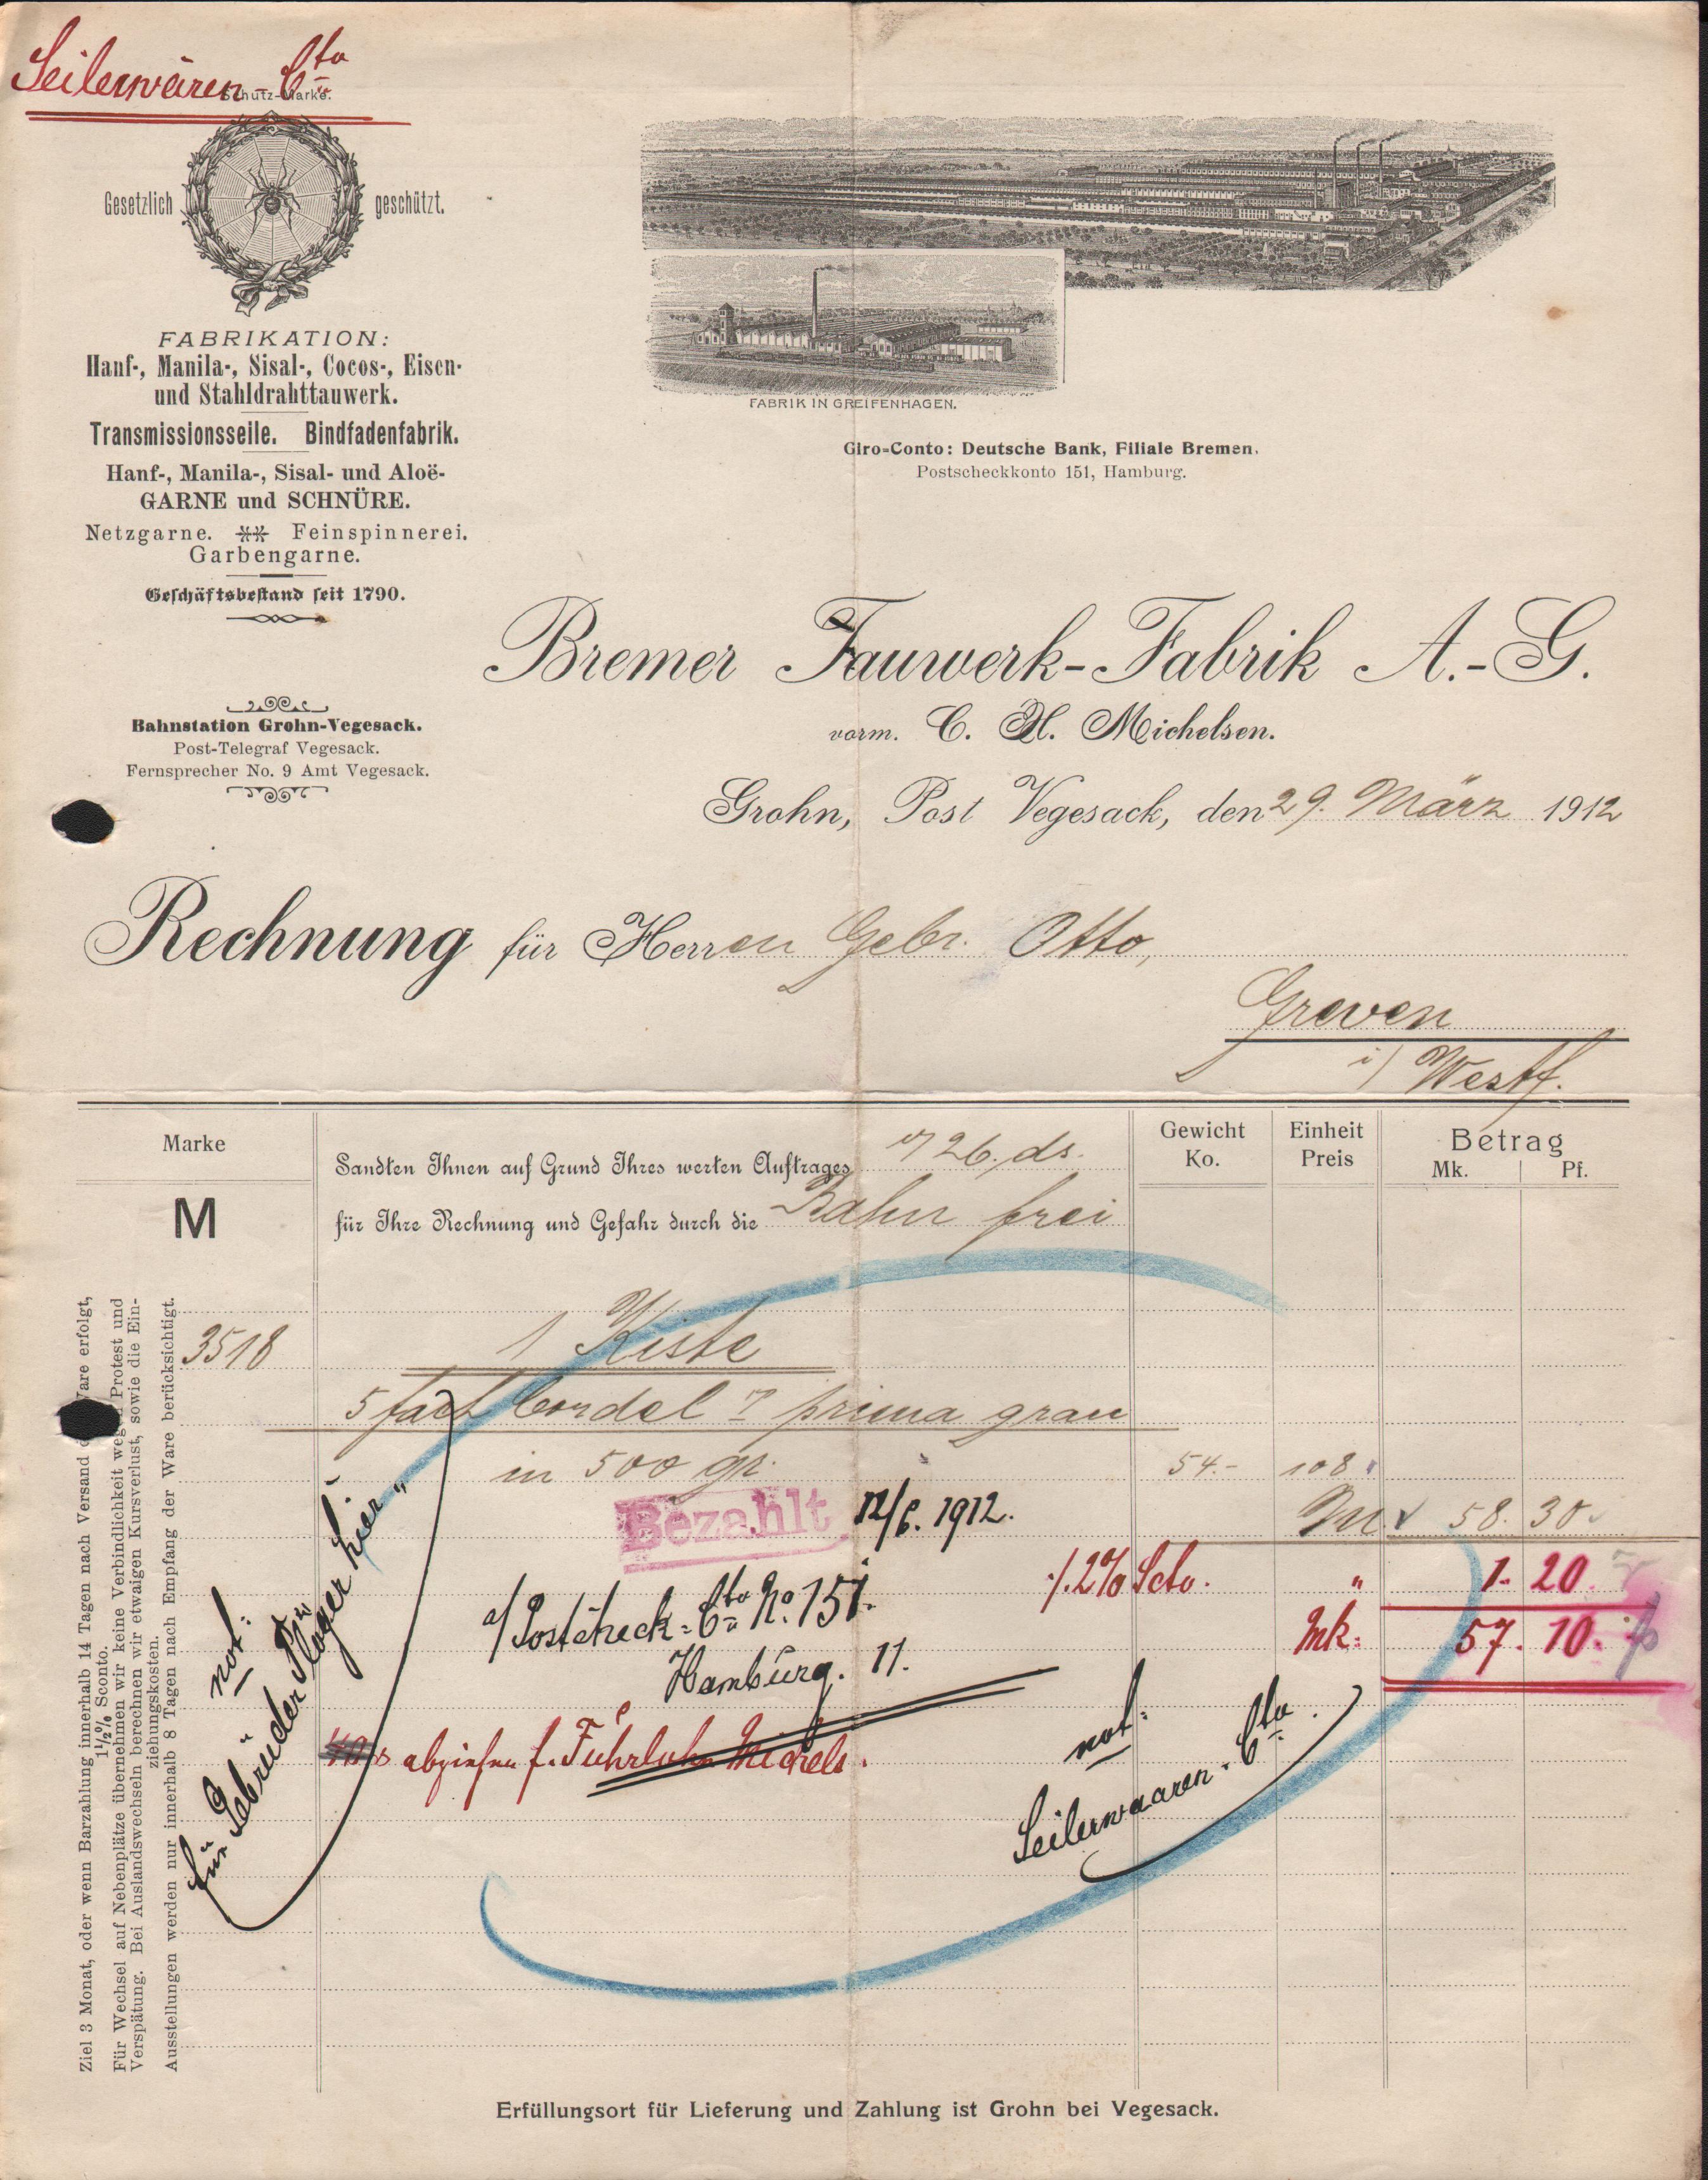 Seilerwaren-Cto
Schutz-Marke.
Gesetzlich geschützt.
FABRIKATION:
Hanf-, Manila-, Sisal-, Cocos-, Eisen-
und Stahldrahttauwerk.
Transmissionsseile. Bindfadenfabrik.
Hanf-, Manila-, Sisal- und Aloë-
GARNE und SCHNÜRE.
Netzgarne. ⁎⁎ Feinspinnerei.
Garbengarne.
Geschäftsbestand seit 1790.
FABRIK IN GREIFENHAGEN.
Giro-Conto: Deutsche Bank, Filiale Bremen.
Postscheckkonto 151, Hamburg.
Bremer Tauwerk-Fabrik A.-G.
vorm. C. H. Michelsen.
Bahnstation Grohn-Vegesack.
Post-Telegraf Vegesack.
Fernsprecher No. 9 Amt Vegesack.
Grohn, Post Vegesack, den 29. März 1912
Rechnung für Herren Gebr. Otto,
Greven
i/ Westf.
Marke
Gewicht Ko.
Einheit Preis
Betrag
Mk. Pf.
M
Sandten Ihnen auf Grund Ihres werten Auftrages v/ 26. ds.
für Ihre Rechnung und Gefahr durch die Bahn frei
3518 1 Kiste
5 fach Cordel prima grau
in 500 gr. 54.- 108
M 58. 30
Bezahlt 12/6. 1912.
./. 2% Scto. " 1. 20.
a/ Postcheck-Cto No. 151.
Mk: 57. 10.
Hamburg. 11.
abziehen f. Fuhrlohn Michels.
not:
Seilerwaaren-Cto.
not:
für Gebrüder Plöger hier"
Ziel 3 Monat, oder wenn Barzahlung innerhalb 14 Tagen nach Versand der Ware erfolgt,
1½% Sconto.
Für Wechsel auf Nebenplätze übernehmen wir keine Verbindlichkeit wegen Protest und
Verspätung. Bei Auslandswechseln berechnen wir etwaigen Kursverlust, sowie die Ein-
ziehungskosten.
Ausstellungen werden nur innerhalb 8 Tagen nach Empfang der Ware berücksichtigt.
Erfüllungsort für Lieferung und Zahlung ist Grohn bei Vegesack.